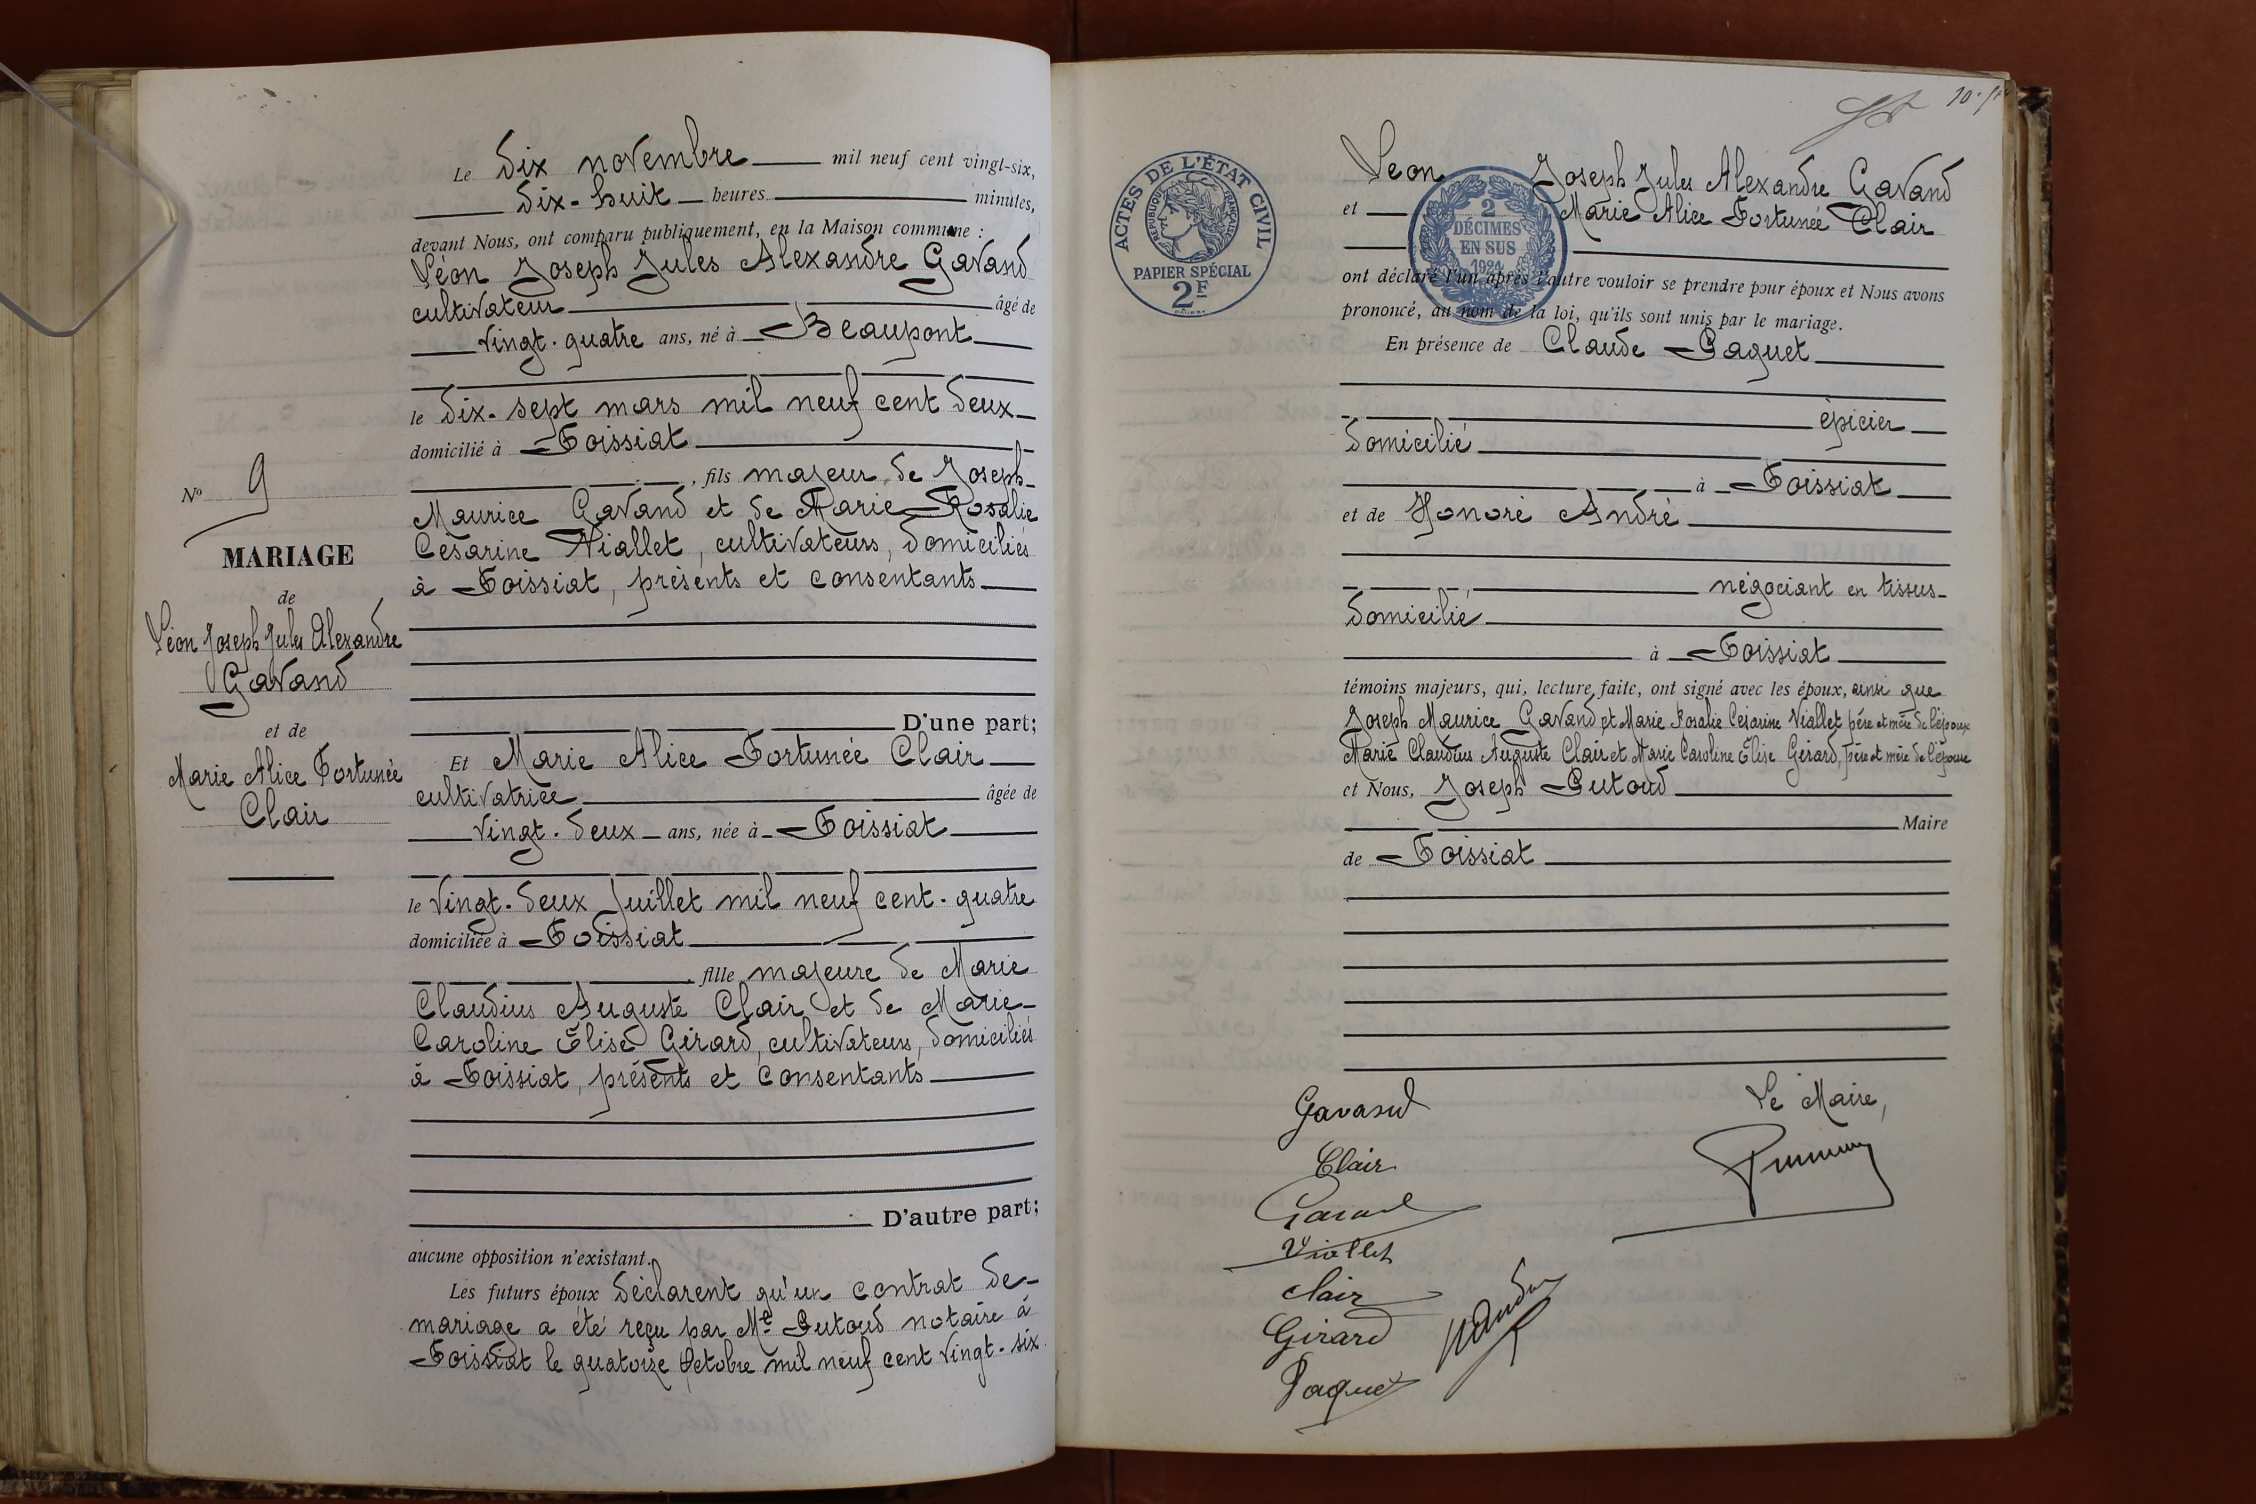 Le dix novembre mil neuf cent vingt-six,
dix-huit heures minutes,
devant Nous, ont comparu publiquement, en la Maison commune :
Léon Joseph Jules Alexandre Gavand
cultivateur âgé de
vingt-quatre ans, né à Beaupont
le dix-sept mars mil neuf cent deux
domicilié à Foissiat
, fils majeur de Joseph
Maurice Gavand et de Marie Rosalie
Césarine Viallet, cultivateurs, domiciliés
à Foissiat, présents et consentants
D'une part;
Et Marie Alice Fortunée Clair
cultivatrice âgée de
vingt-deux ans, née à Foissiat
le vingt-deux Juillet mil neuf cent-quatre
domiciliée à Foissiat
, fille majeure de Marie
Claudius Auguste Clair et de Marie
Caroline Élise Girard, cultivateurs, domiciliés
à Foissiat, présents et consentants
D'autre part;
aucune opposition n'existant.
Les futurs époux déclarent qu'un contrat de
mariage a été reçu par Me Putoud notaire à
Foissiat le quatorze Octobre mil neuf cent vingt-six
No 9
MARIAGE
de
Léon Joseph Jules Alexandre
Gavand
et de
Marie Alice Fortunée
Clair
Léon Joseph Jules Alexandre Gavand
et Marie Alice Fortunée Clair
ont déclaré l'un après l'autre vouloir se prendre pour époux et Nous avons
prononcé, au nom de la loi, qu'ils sont unis par le mariage.
En présence de Claude Paquet
épicier
domicilié
à Foissiat
et de Honoré André
négociant en tissus
domicilié
à Foissiat
témoins majeurs, qui, lecture faite, ont signé avec les époux, ainsi que
Joseph Maurice Gavand et Marie Rosalie Césarine Viallet père et mère de l'époux
Marie Claudius Auguste Clair et Marie Caroline Élise Girard, père et mère de l'épouse
et Nous, Joseph Putoud
Maire
de Foissiat
Le Maire,
Gavand
Clair
Gavand
Viallet
Clair
Girard
Paquet
ACTES DE L'ÉTAT CIVIL
RÉPUBLIQUE FRANÇAISE
PAPIER SPÉCIAL
2F
2
DÉCIMES
EN SUS
1924